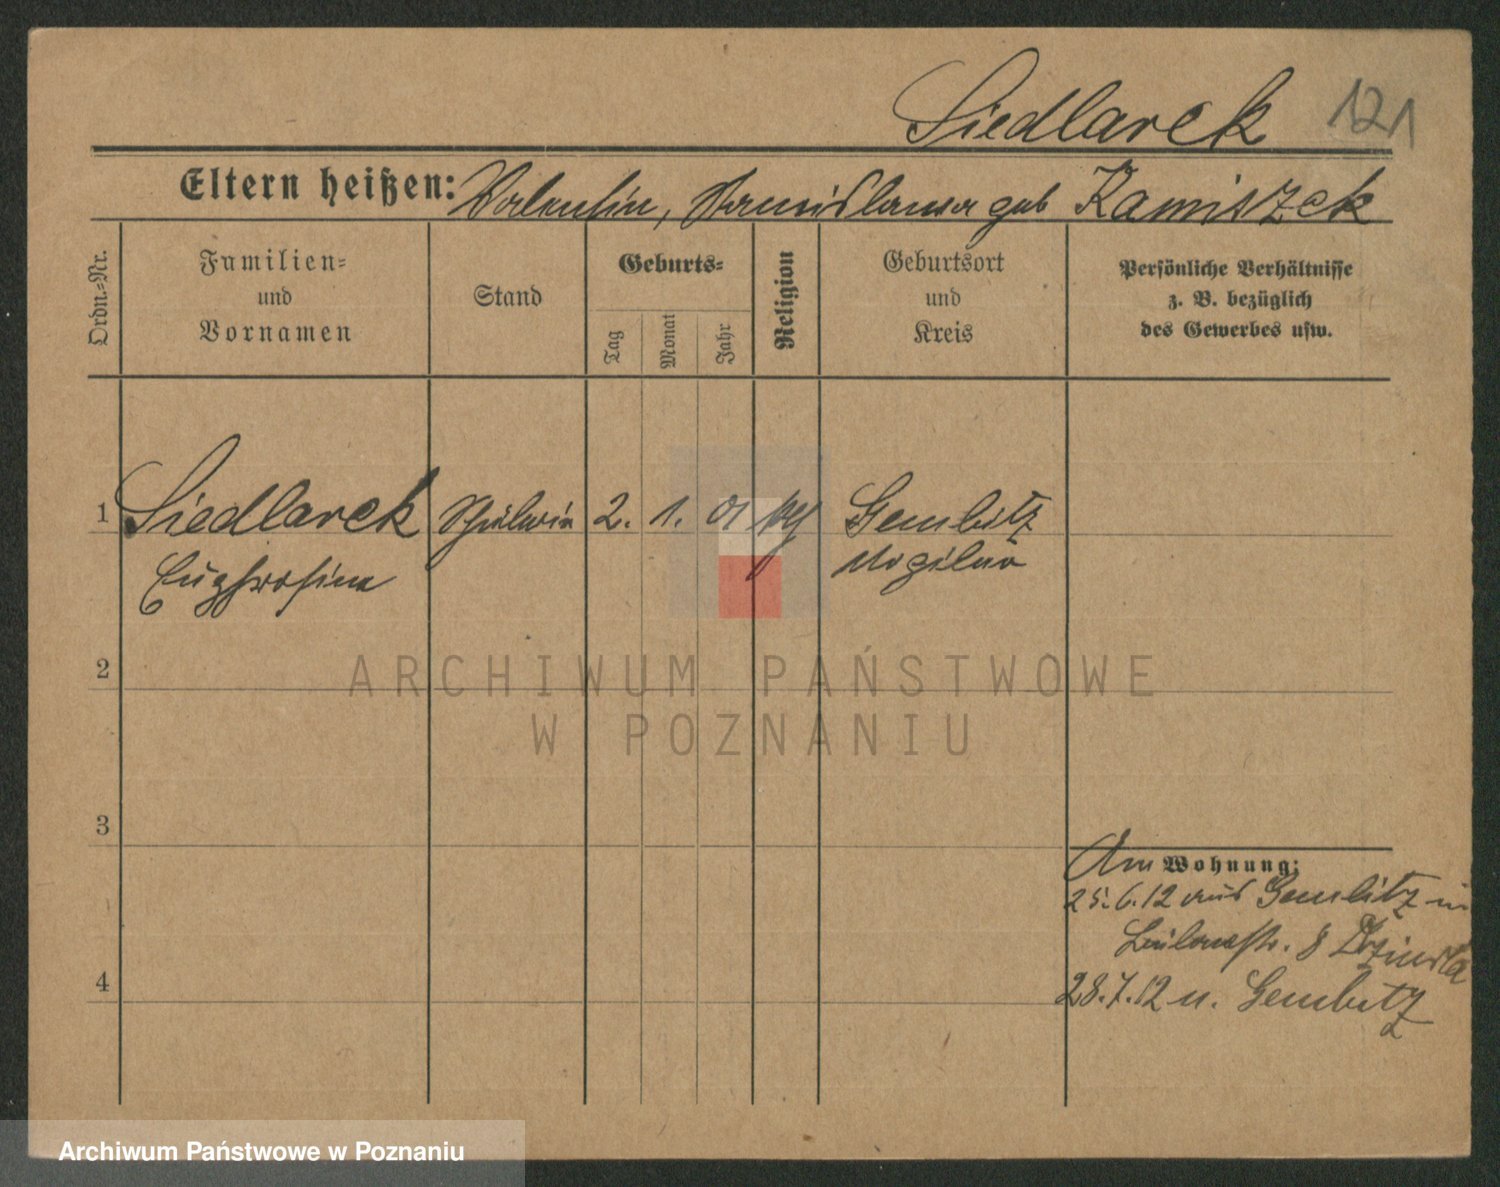 Siedlarek 121
Eltern heißen: Valentin, Stanislawa geb Kamiszek
Ordn.-Nr.
Familien-
und
Vornamen
Stand
Geburts-
Tag
Monat
Jahr
Religion
Geburtsort
und
Kreis
Persönliche Verhältnisse
z. B. bezüglich
des Gewerbes usw.
1 Siedlarek Schülerin 2. 1. 01 Gembitz
Eugfrosina Mogilno
2
ARCHIWUM PAŃSTWOWE
W POZNANIU
3
Am Wohnung:
25.6.12 aus Gembitz in
8
4
28.7.12 n. Gembitz
Archiwum Państwowe w Poznaniu